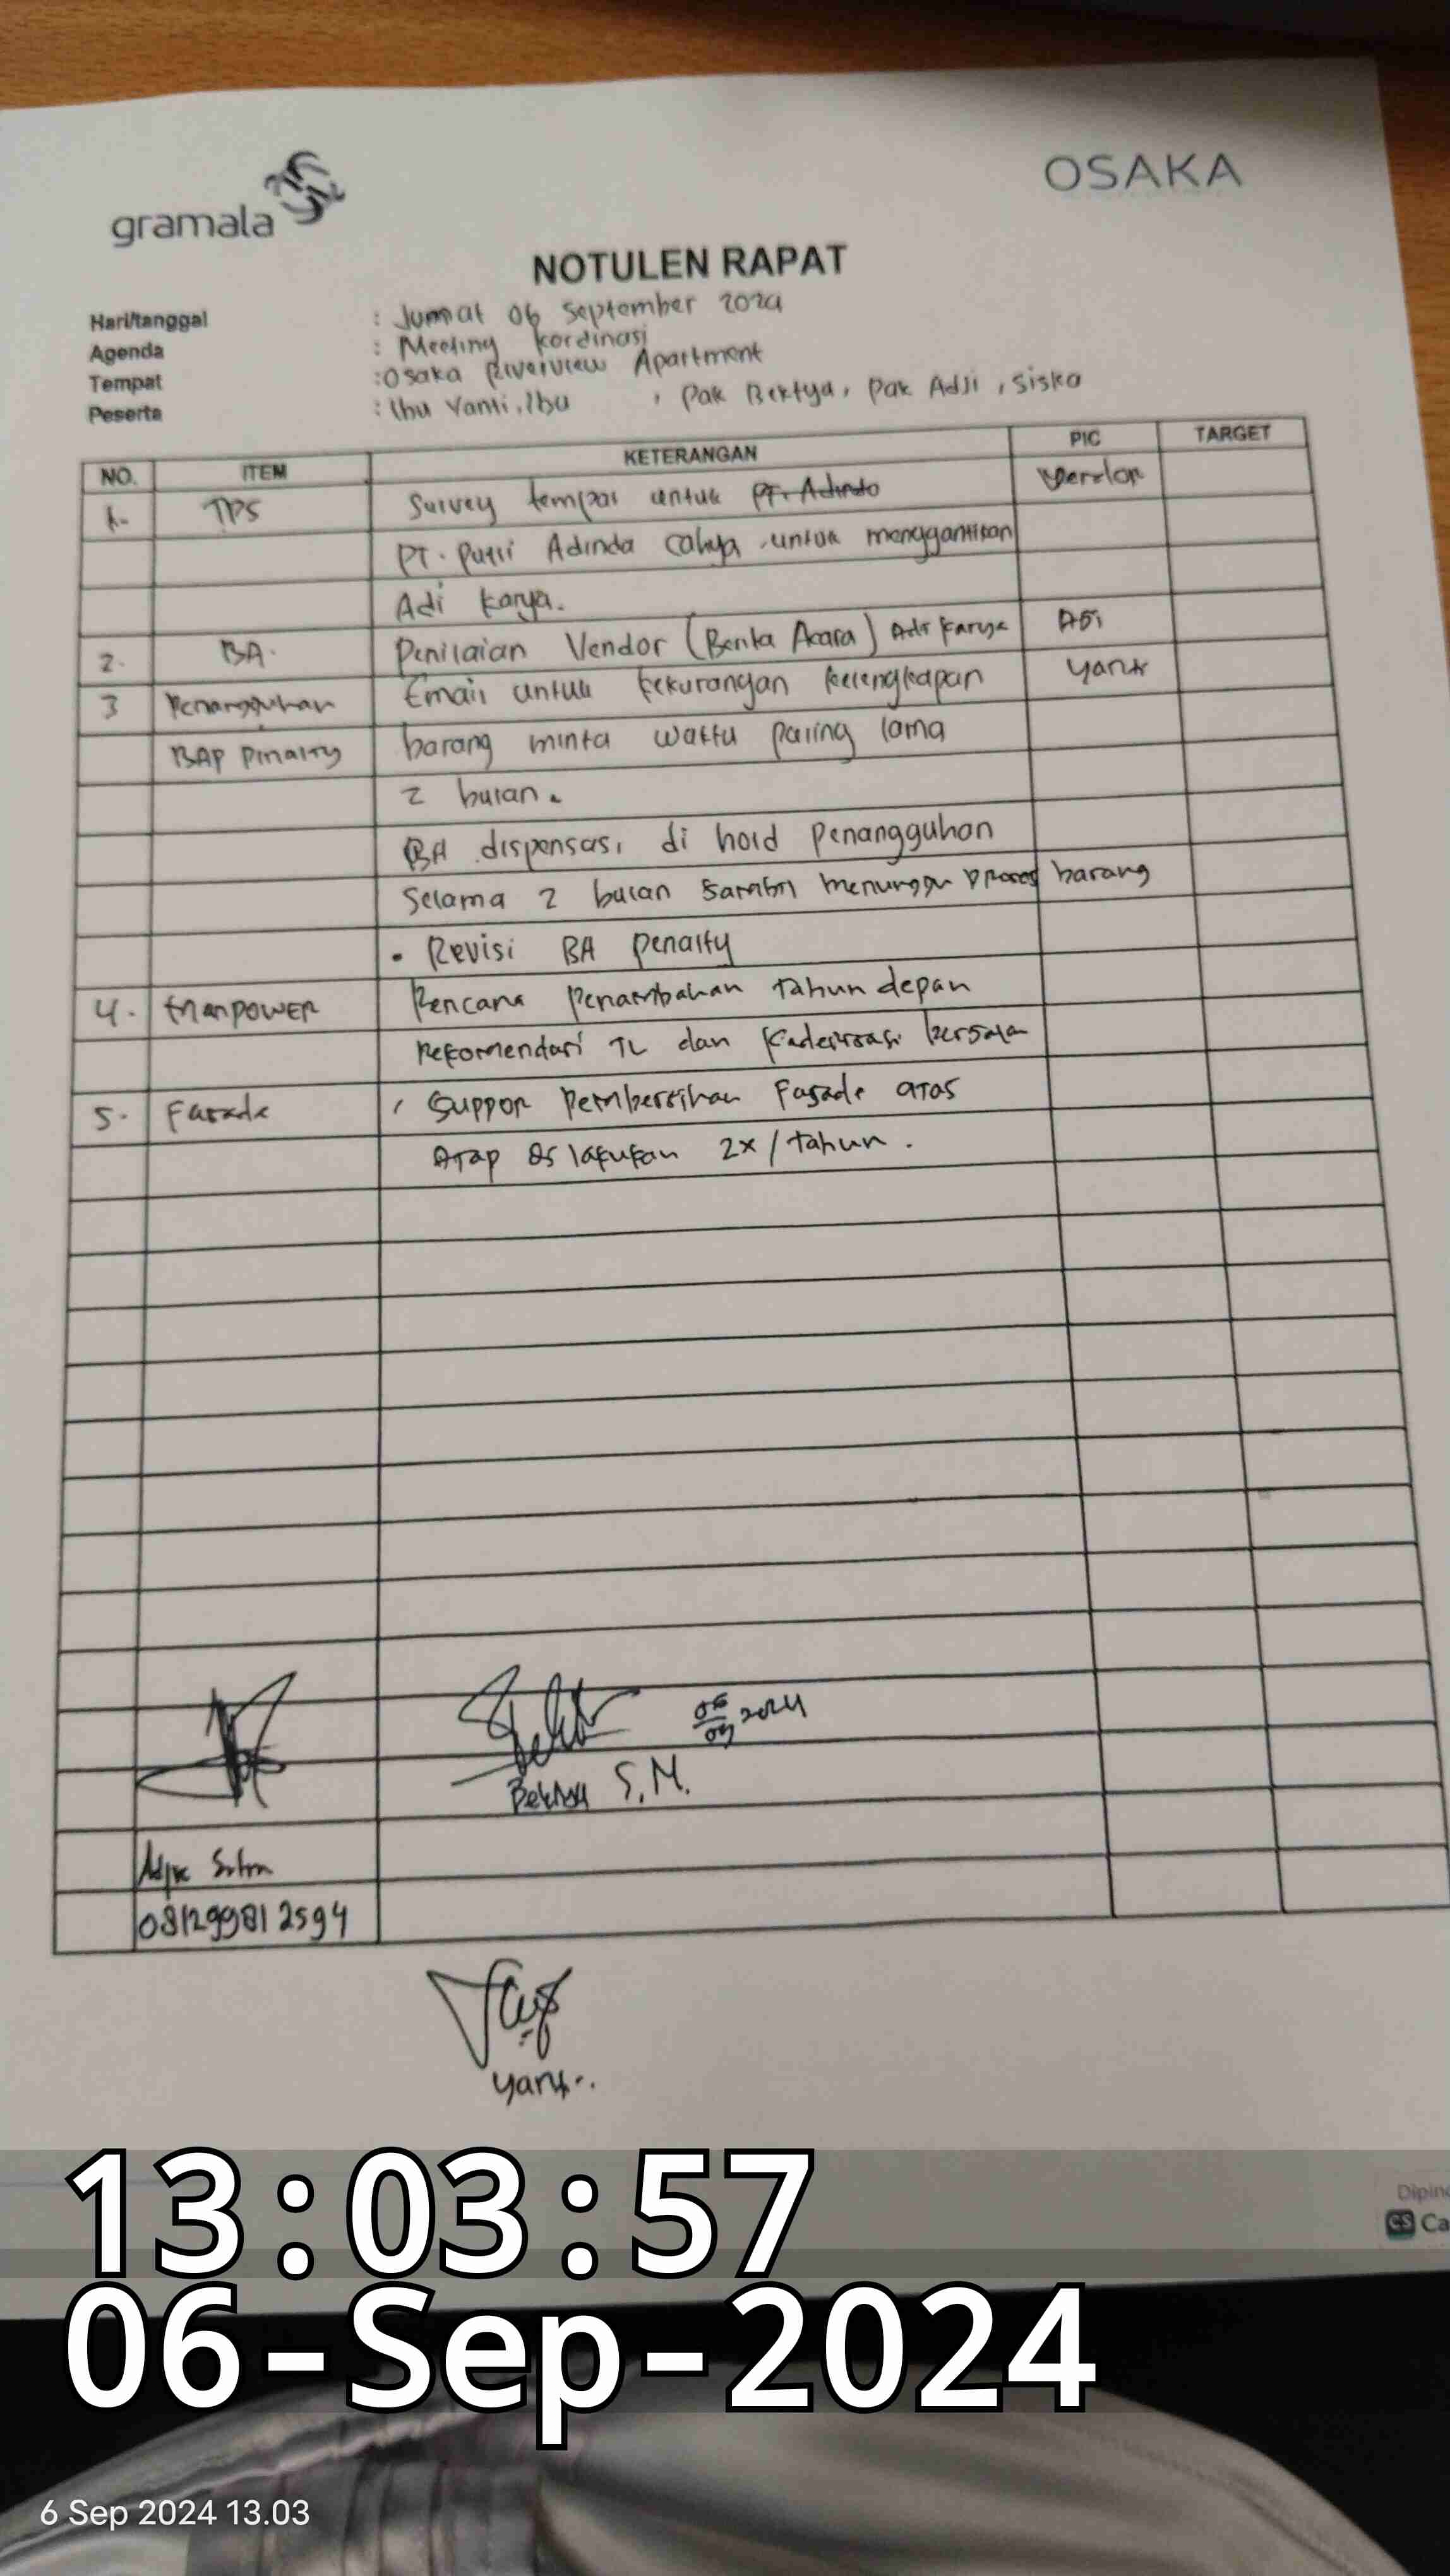 gramala
OSAKA
NOTULEN RAPAT
Hari/tanggal : Jumat 06 September 2024
Agenda : Meeting kordinasi
Tempat : Osaka Riverview Apartment
Peserta : Ibu Yanti, Ibu , Pak Bektya, Pak Adji, Siska
NO. ITEM KETERANGAN PIC TARGET
1. TPS Survey tempat untuk PT. Adinda Vendor
PT. Putri Adinda Cahya untuk menggantikan
Adi Karya.
2. BA. Penilaian Vendor (Berita Acara) Adi Karya Adi
3 Penangguhan Email untuk kekurangan kelengkapan Yanti
BAP Pinalty barang minta waktu paling lama
2 bulan.
BA dispensasi di hold Penangguhan
Selama 2 bulan sambil menunggu proses barang
• Revisi BA Penalty
4. MANPOWER Rencana Penambahan Tahun depan
Rekomendasi TL dan Kaderisasi
5. Fasade Suppor Pembersihan Fasade atas
Atap di lakukan 2x/tahun.
06/09 2024
Bektya S.M.
081299812594
Yanti..
13:03:57
06-Sep-2024
6 Sep 2024 13.03
CS Ca